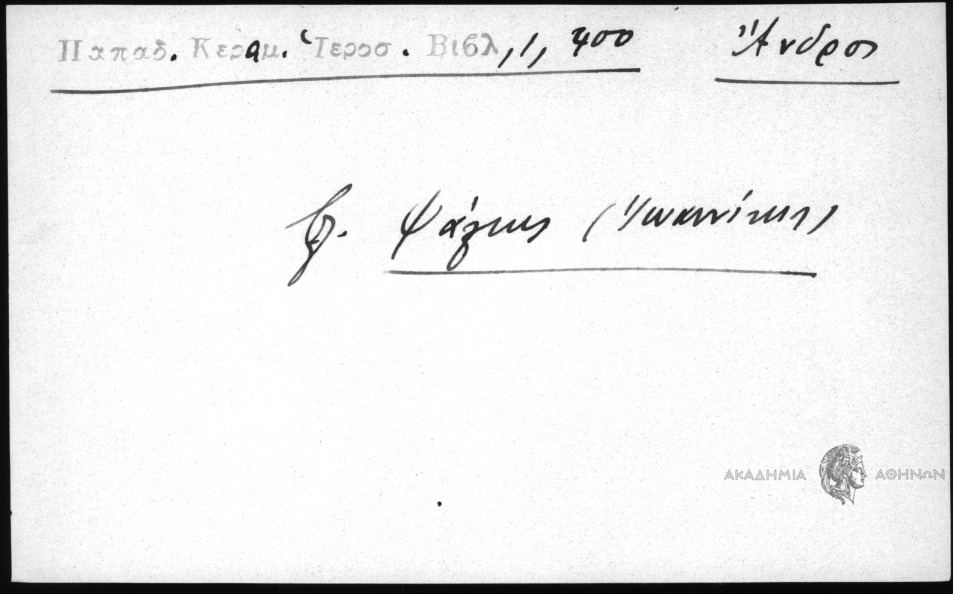 Παπαδ. Κεραμ. Ἱεροσ. Βιβλ, 1, 400 Ἄνδρος
Φάγκης (Ἰωαννίκης)
ΑΚΑΔΗΜΙΑ ΑΘΗΝΩΝ